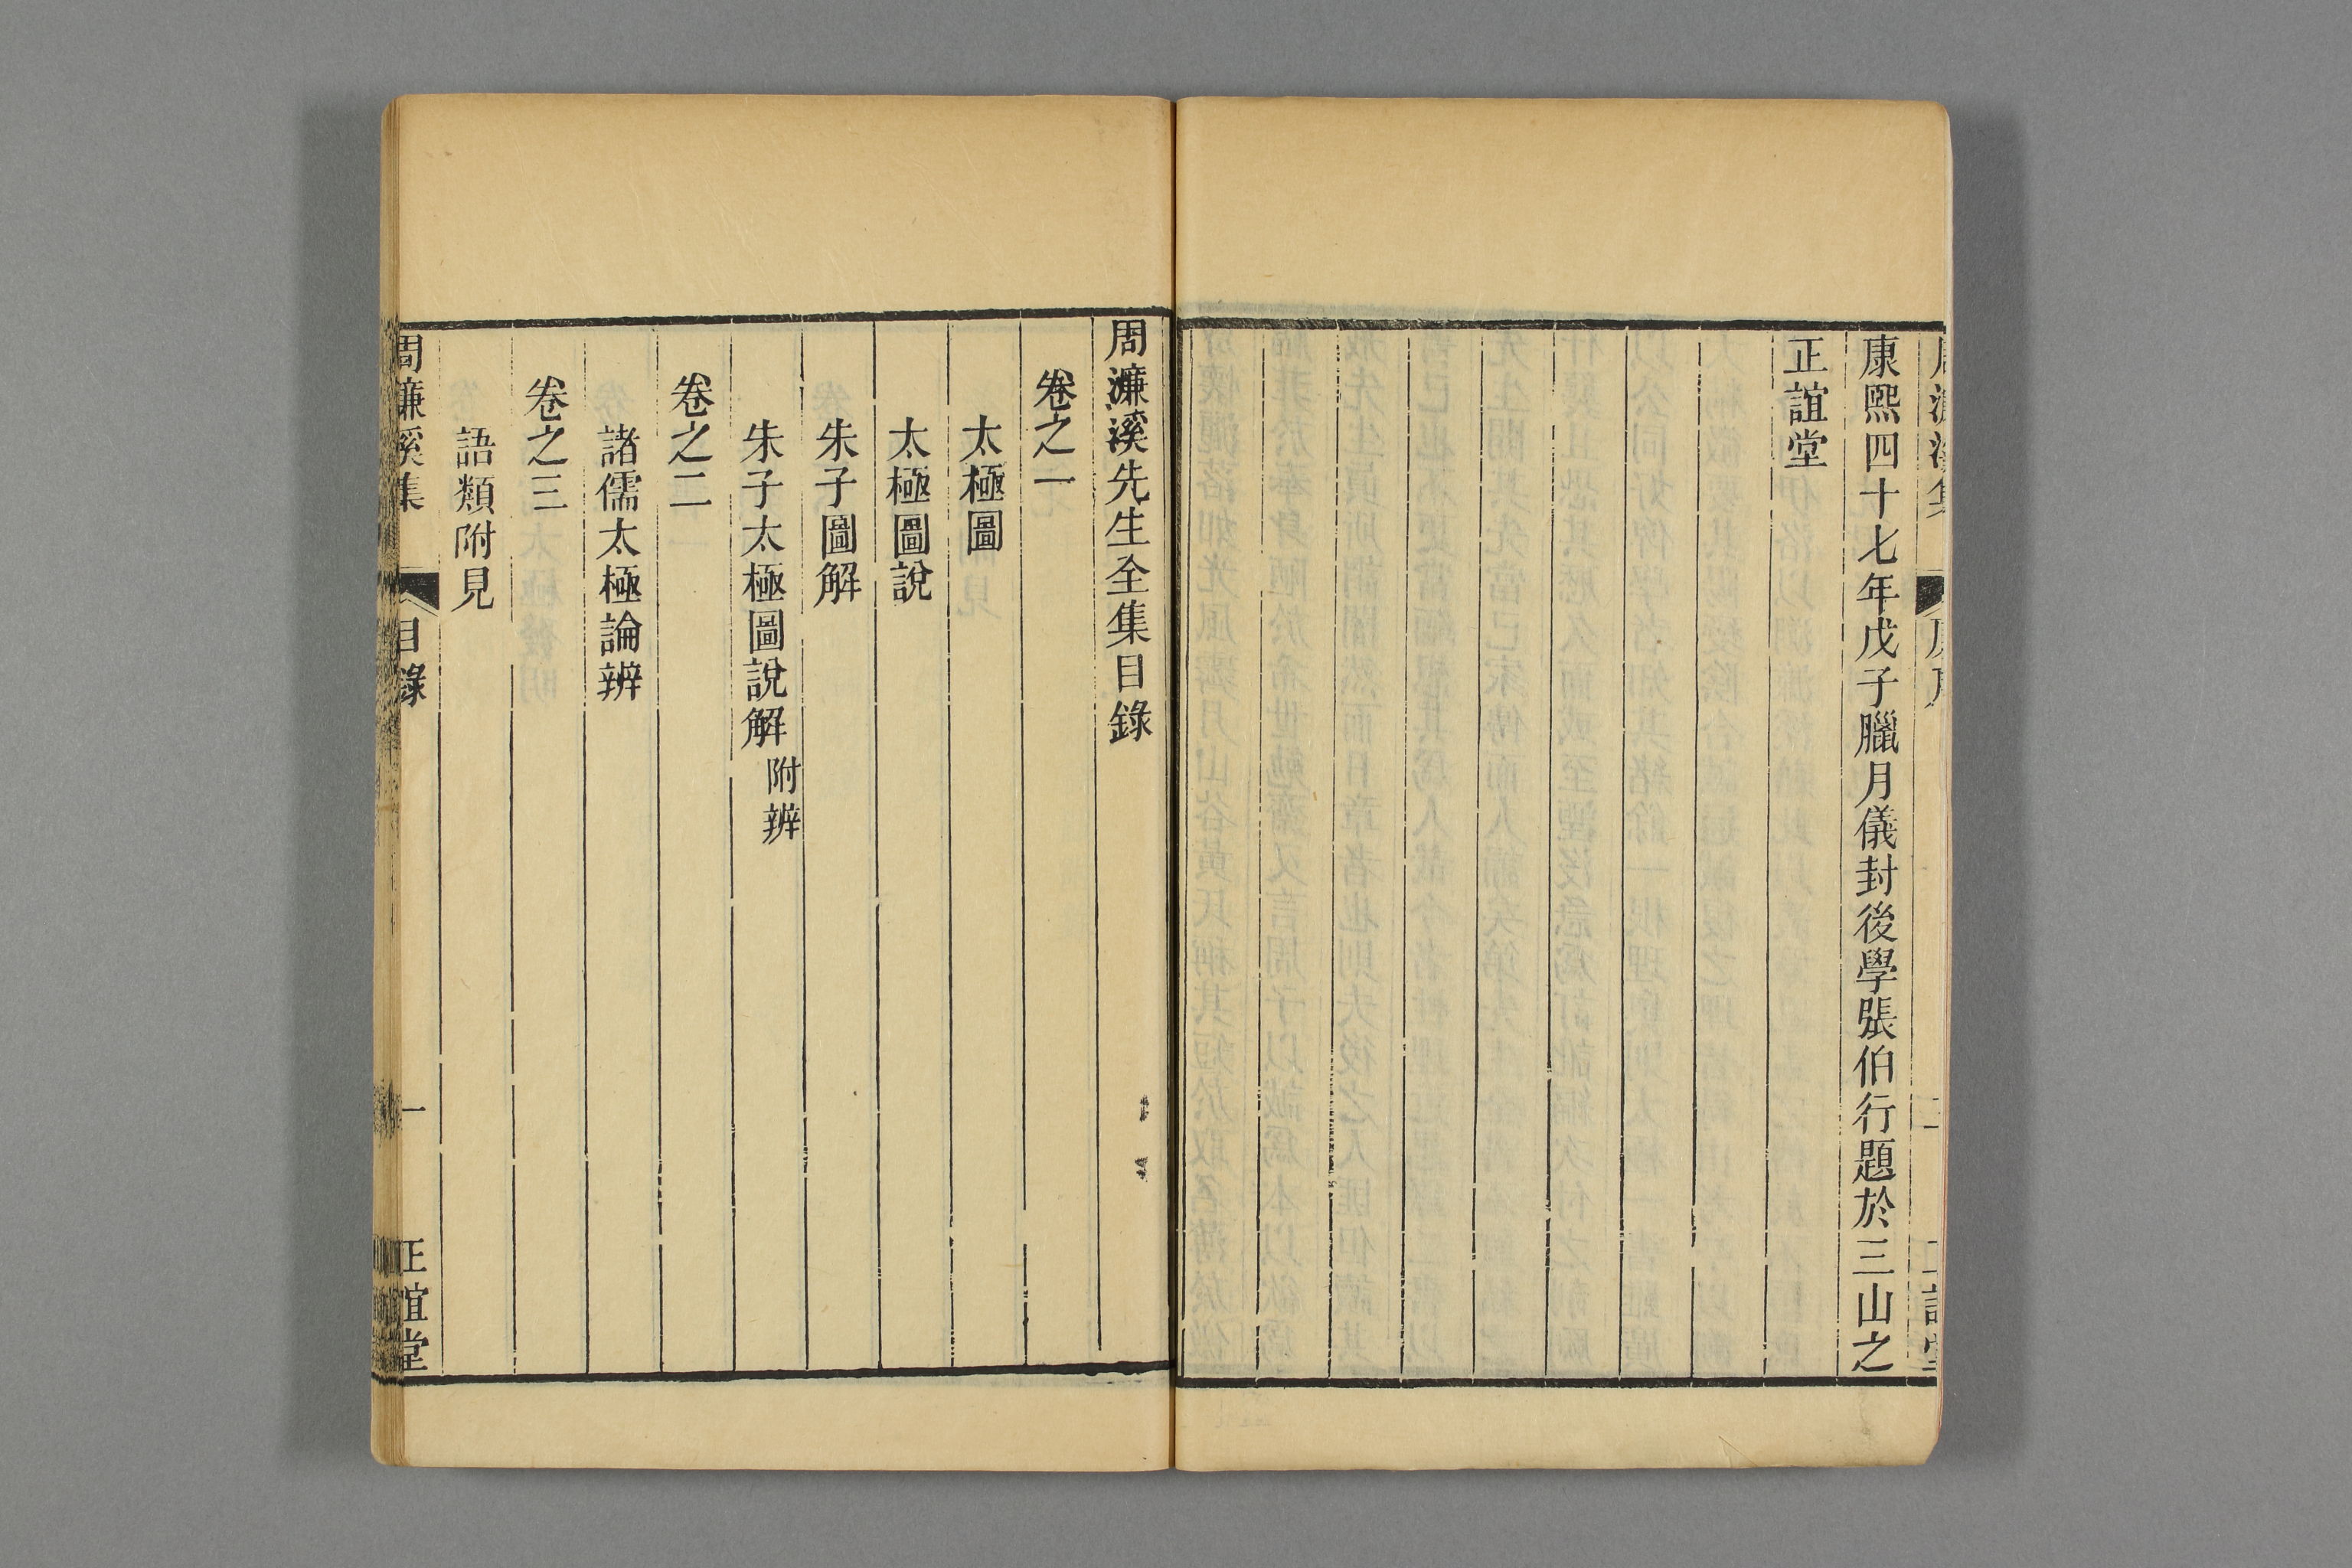 康熙四十七年戊子臘月儀封後學張伯行題於三山之
正誼堂
周濂溪先生全集目錄
卷之一
太極圖
太極圖說
朱子圖解
朱子太極圖說解 附辨
卷之二
諸儒太極論辨
卷之三
語類附見
周濂溪集 目錄 一 正誼堂